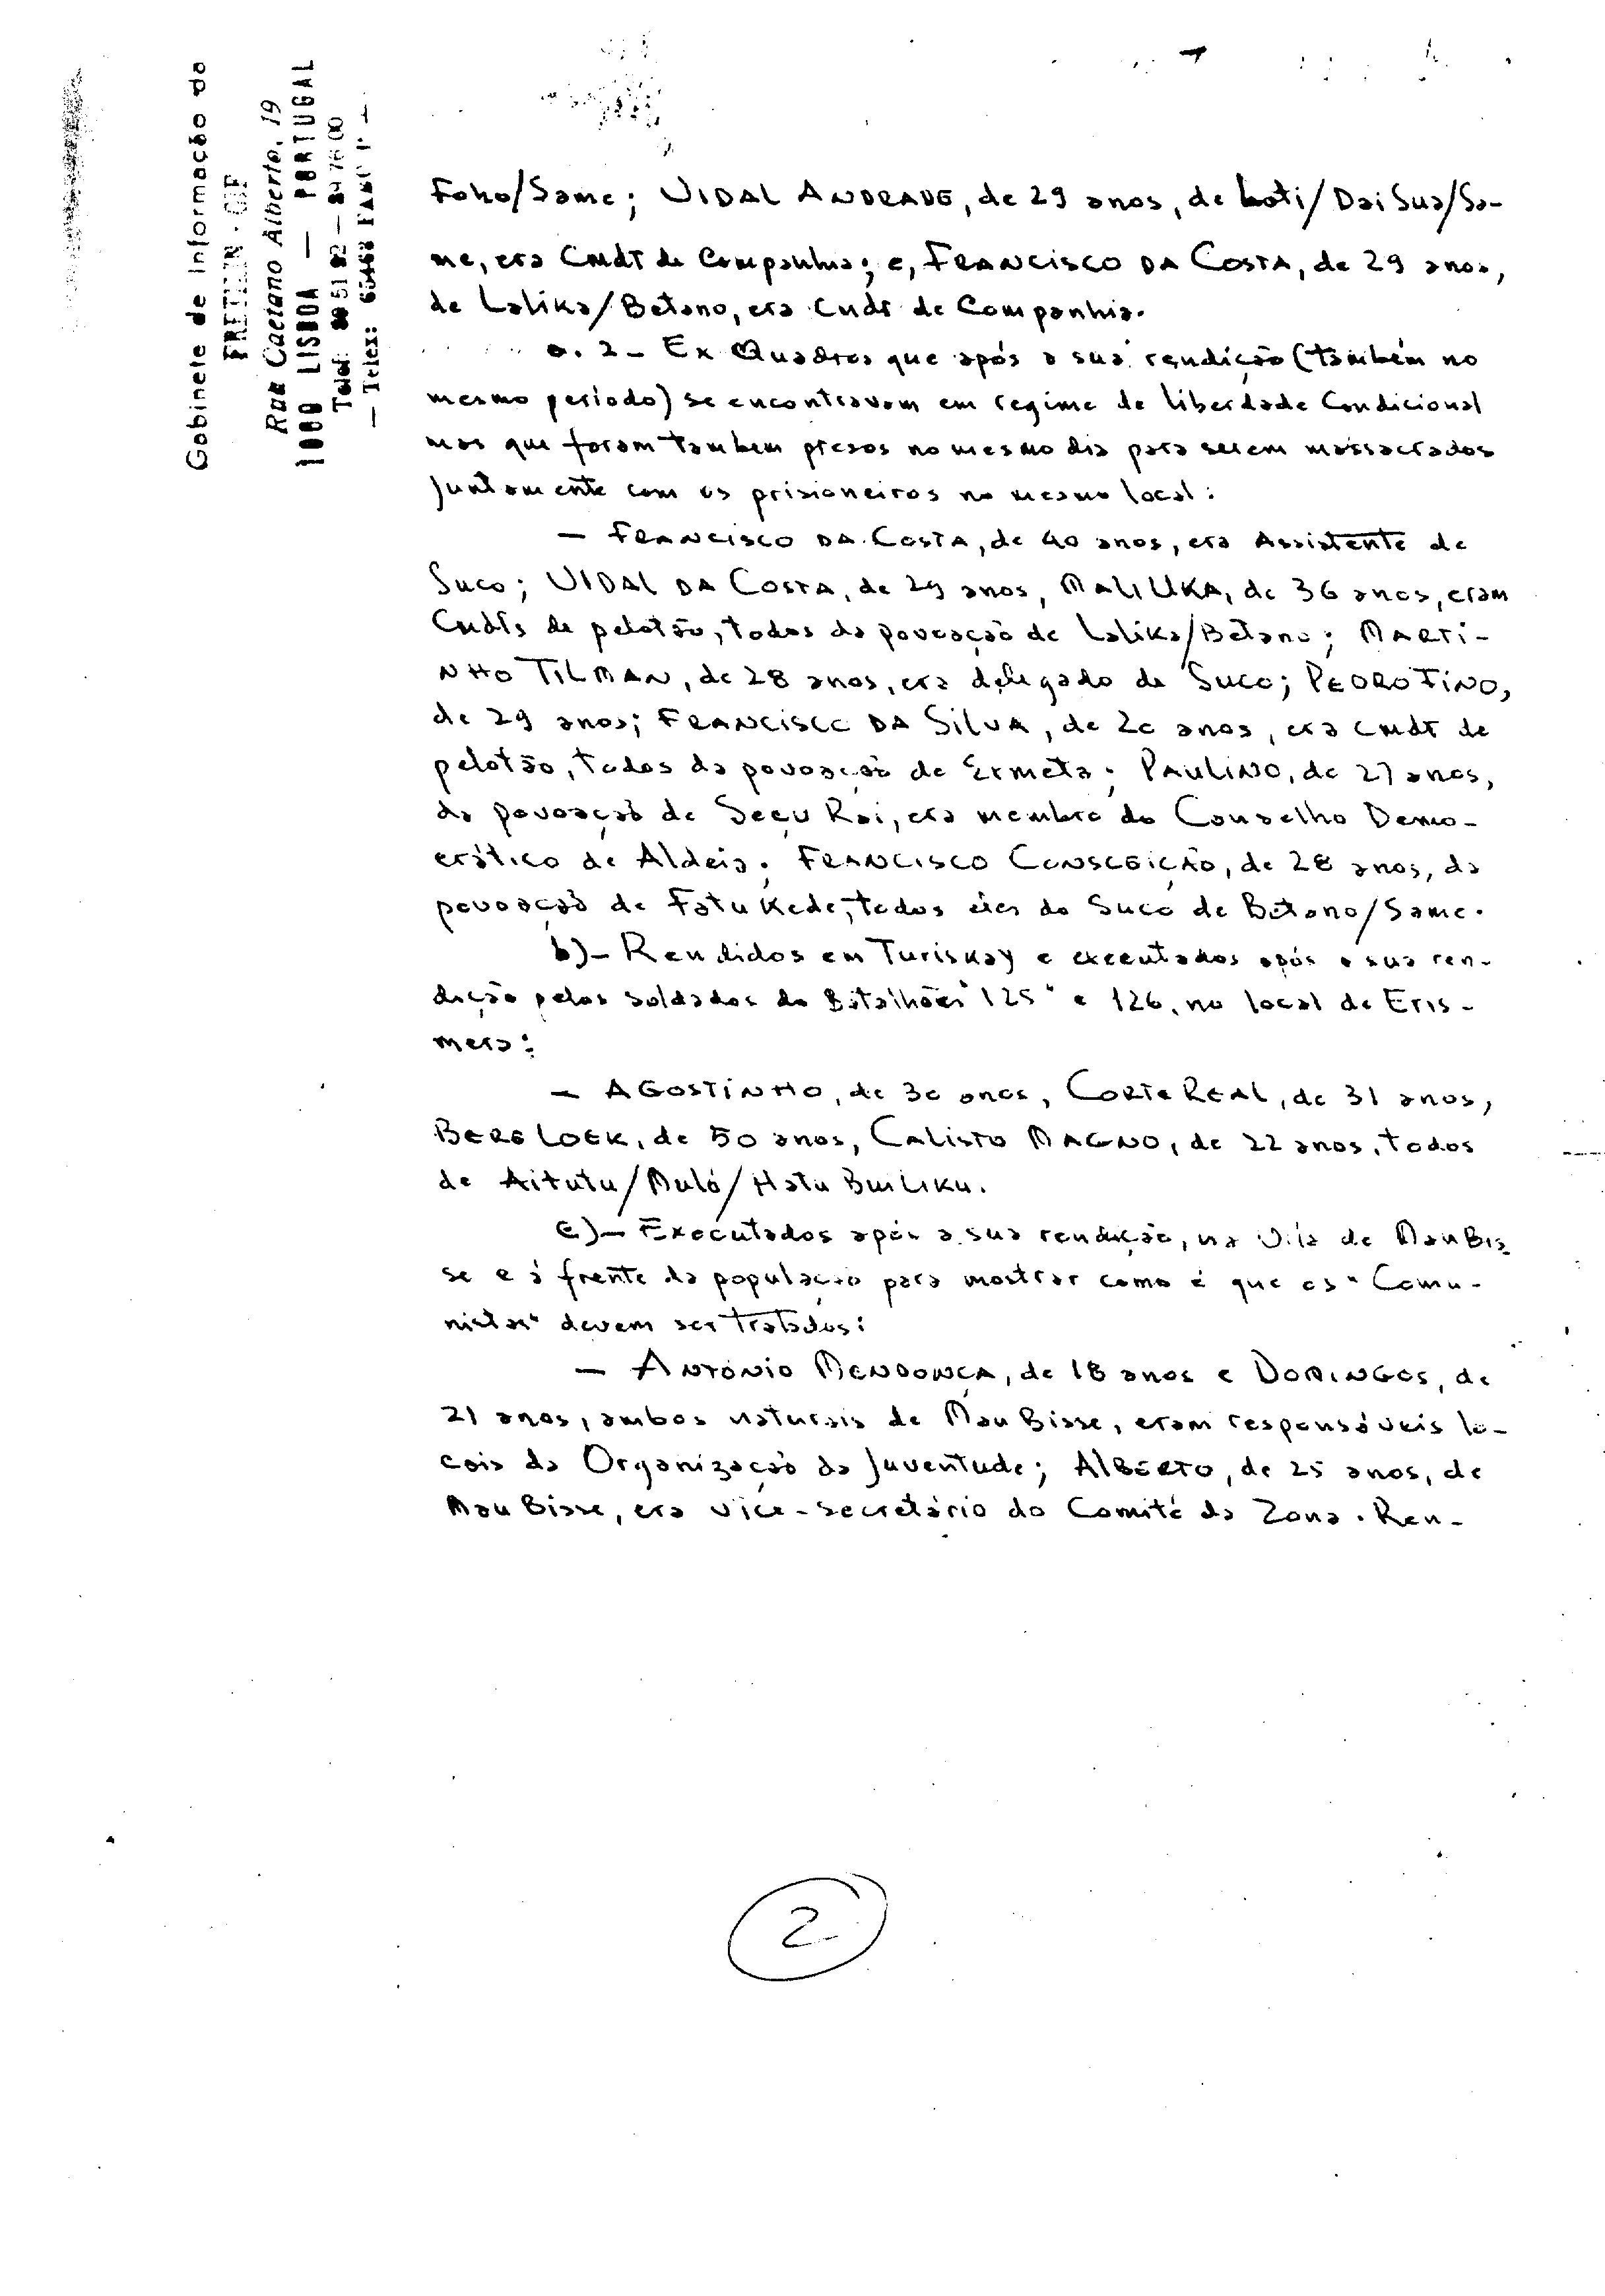 Gabinete de Informação da
FRETILIN
Rua Caetano Alberto, 19
1000 LISBOA — PORTUGAL
Telef:
— Telex:
Foho/Same; VIDAL ANDRADE, de 29 anos, de Loti/DaiSua/Sa-
me, era Cmdt de Companhia; e, FRANCISCO DA COSTA, de 29 anos,
de Lalika/Betano, era Cmdt de Companhia.
a. 2 - Ex Quadros que após a sua rendição (também no
mesmo período) se encontravam em regime de liberdade Condicional
mas que foram também presos no mesmo dia para serem massacrados
juntamente com os prisioneiros no mesmo local:
— FRANCISCO DA COSTA, de 40 anos, era Assistente de
Suco; VIDAL DA COSTA, de 29 anos, MALI UKA, de 36 anos, eram
Cmdts de pelotão, todos da povoação de Lalika/Betano; MARTI-
NHO TILMAN, de 28 anos, era delegado de Suco; PEDRO TINO,
de 29 anos; FRANCISCO DA SILVA, de 20 anos, era cmdt de
pelotão, todos da povoação de Ermeta; PAULINO, de 27 anos,
da povoação de Seçu Rai, era membro do Conselho Demo-
crático de Aldeia; FRANCISCO CONSCEIÇÃO, de 28 anos, da
povoação de Fatu Kede, todos eles do Suco de Betano/Same.
b)- Rendidos em Turiskay e executados após a sua ren-
dição pelos soldados do Batalhões 125 e 126, no local de Eris-
mera:
— AGOSTINHO, de 30 anos, CORTE REAL, de 31 anos,
BERELOEK, de 50 anos, CALISTO MAGNO, de 22 anos, todos
de Aitutu/Muló/Hatu BuiLiku.
c)- Executados após a sua rendição, na Vila de MauBis
se e à frente da população para mostrar como é que os "Comu-
nistas" devem ser tratados:
— ANTÓNIO MENDONÇA, de 18 anos e DOMINGOS, de
21 anos, ambos naturais de Mau Bisse, eram responsáveis lo-
cais da Organização da Juventude; ALBERTO, de 25 anos, de
Mau Bisse, era vice-secretário do Comité da Zona. Ren-
2